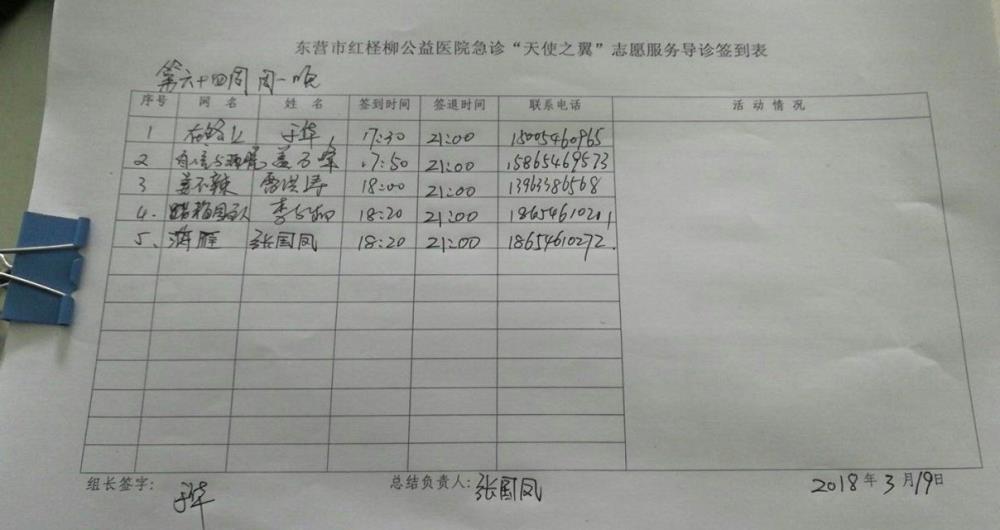 东营市红柽柳公益医院急诊“天使之翼”志愿服务导诊签到表
第六十四周 周一晚
序号 网名 姓名 签到时间 签退时间 联系电话 活动情况
1 在路上 于华 17:30 21:00 15005460965
2 姜万军 17:50 21:00 15865469573
3 姜不辣 18:00 21:00 13963386568
4. 18:20 21:00 18654610211
5、海雁 张国凤 18:20 21:00 18654610272.
组长签字: 于华 总结负责人: 张国凤 2018年3月19日